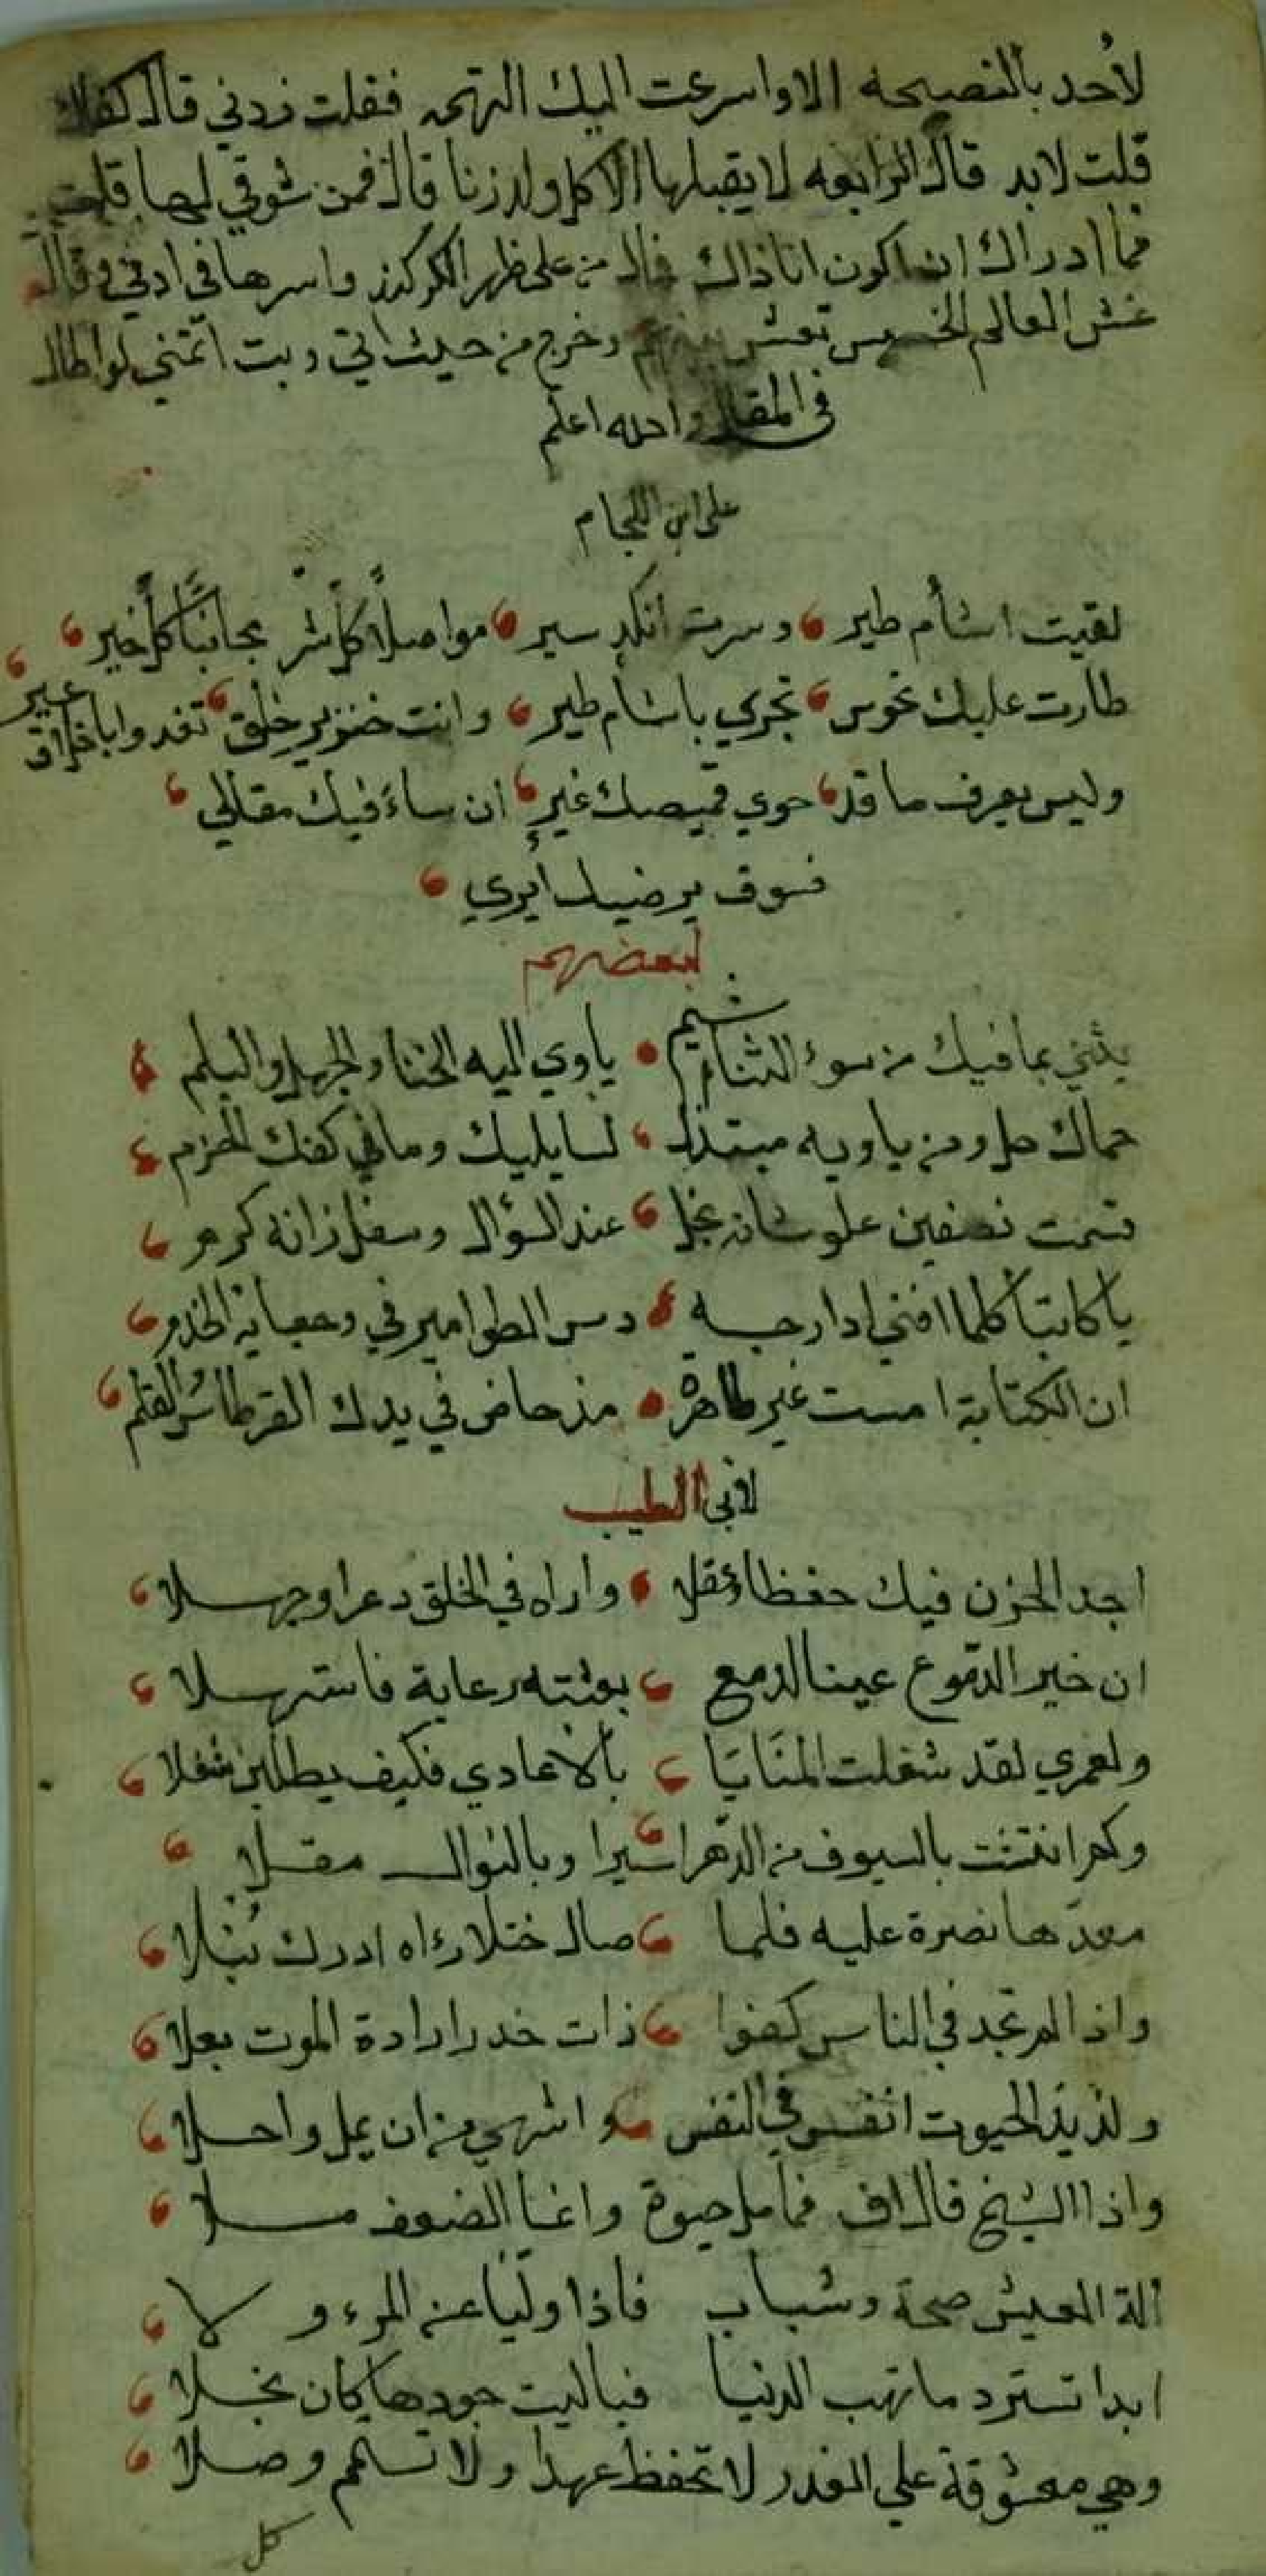 لأحد بالنصيحه الا واسرعت اليك التهمه فقلت زدني قال كفاك
قلت لابد قال الرابعه لا يقبلها الا كل ولد زنا قال فمن شوقي لها قلت
فما ادراك ان اكون انا ذاك قال من على ظهر واسرها في اذني وقال
غش العالم تعش وخرج من حيث اتى وبت اتمنى لو اطال
في المقال والله اعلم
على ابن اللجام
لقيت اشأم طير وسرت انكد سير مواصلًا كل شر مجانبًا كل خير
طارت عليك نحوس تجري باشأم طير وانت خنزير خلق تغدوا باخلاق عير
وليس يعرف ما قد حوي قميصك غير ان ساءَ فيك مقالي
فسوف يرضيك أيري
لبعضهم
يثني بما فيك من سوء الثناء شيم ياوي اليه الخنا والجهل والبلم
حماك حل ومن ياويه مبتذل لسايليك وما في كفك الحرم
قسمت نصفين علو شانه بخل عند السؤال وسفل زانه كرم
يا كاتبا كلما افني ادارجه دس الطوامير في وجعايه الخدم
ان الكتابة امست غير طاهرة مذ حاض في يدك القرطاسُ والقلم
لابي الطيب
اجد الحزن فيك حفظا وعقلا واراه في الخلق دعرا وجهلا
ان خير الدموع عينا لدمع بعثته رعاية فاستهلا
ولعمري لقد شغلت المنَايَا بالاعادي فكيف يطلبن شغلا
وكم انتشت بالسيوف من الدهر اسيرا وبالنوال مقلا
معدّها نصرة عليه فلما صال ختلا رءاه ادرك نبلا
واذا لم تجد في الناس كفوا ذات خدر ارادة الموت بعلا
ولذيذ الحيوت انفس في النفس واشهي من ان يمل واحلا
واذا الشيخ قال اف فما مل حيوة وانما الضعف ملا
آلة العيش صحة وشباب فاذا وليا عن المرء ولا
ابدا تسترد ما تهب الدنيا فياليت جودها كان بخلا
وهي معشوقة علي الغدر لا تحفظ عهدا ولا تتمم وصلا
كل